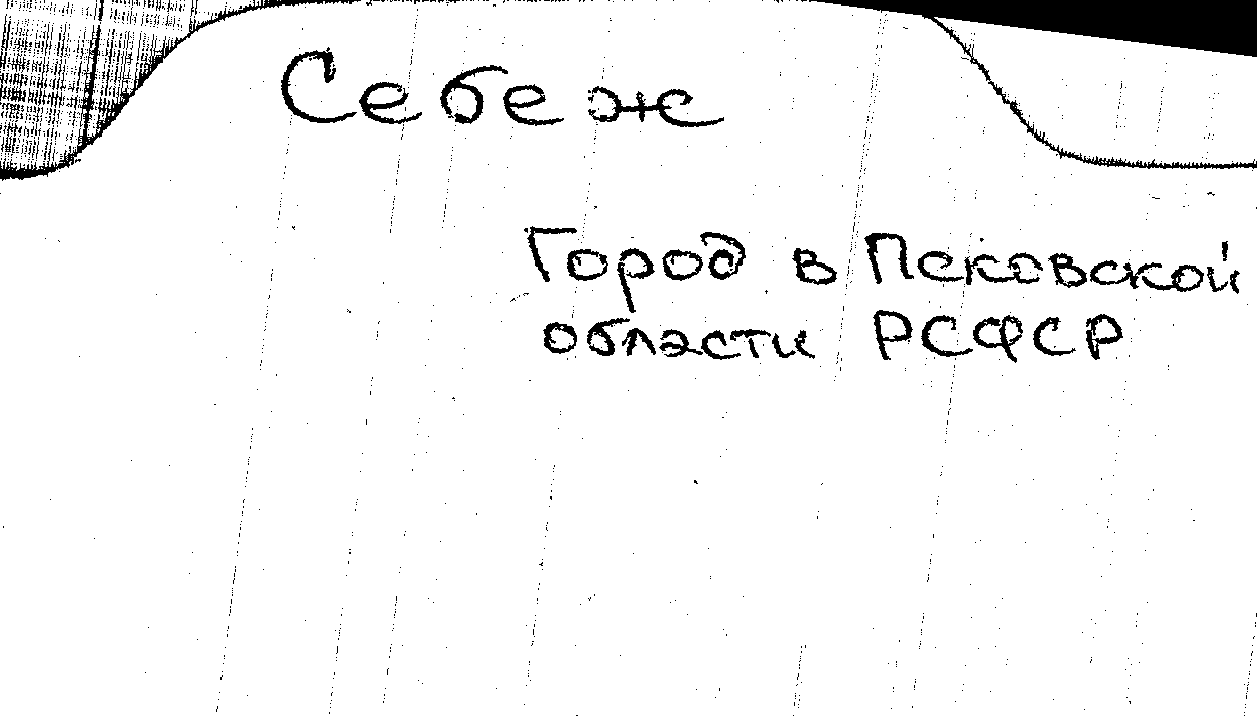 Себеж
Город в Псковской
области РСФСР